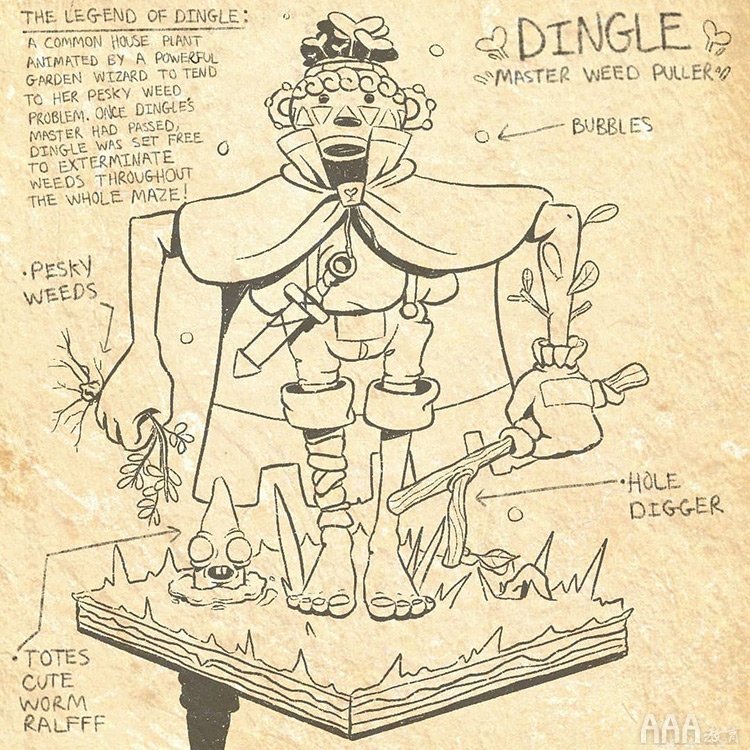 THE LEGEND OF DINGLE:
A COMMON HOUSE PLANT
ANIMATED BY A POWERFUL
GARDEN WIZARD TO TEND
TO HER PESKY WEED
PROBLEM. ONCE DINGLE'S
MASTER HAD PASSED,
DINGLE WAS SET FREE
TO EXTERMINATE
WEEDS THROUGHOUT
THE WHOLE MAZE!
DINGLE
MASTER WEED PULLER
BUBBLES
• PESKY
WEEDS
• HOLE
DIGGER
• TOTES
CUTE
WORM
RALFFF
AAA教育